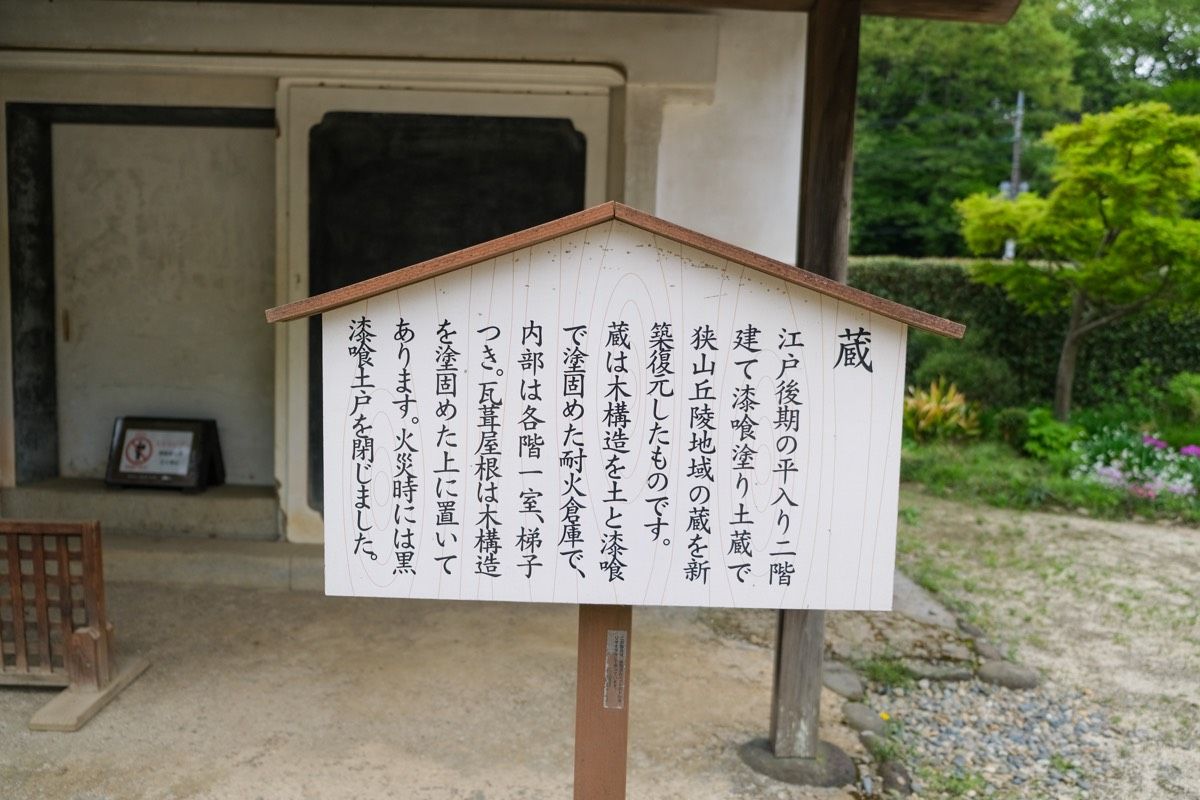 蔵
江戸後期の平入り二階
建て漆喰塗り土蔵で
狭山丘陵地域の蔵を新
築復元したものです。
蔵は木構造を土と漆喰
で塗固めた耐火倉庫で、
内部は各階一室、梯子
つき。瓦葺屋根は木構造
を塗固めた上に置いて
あります。火災時には黒
漆喰土戸を閉じました。